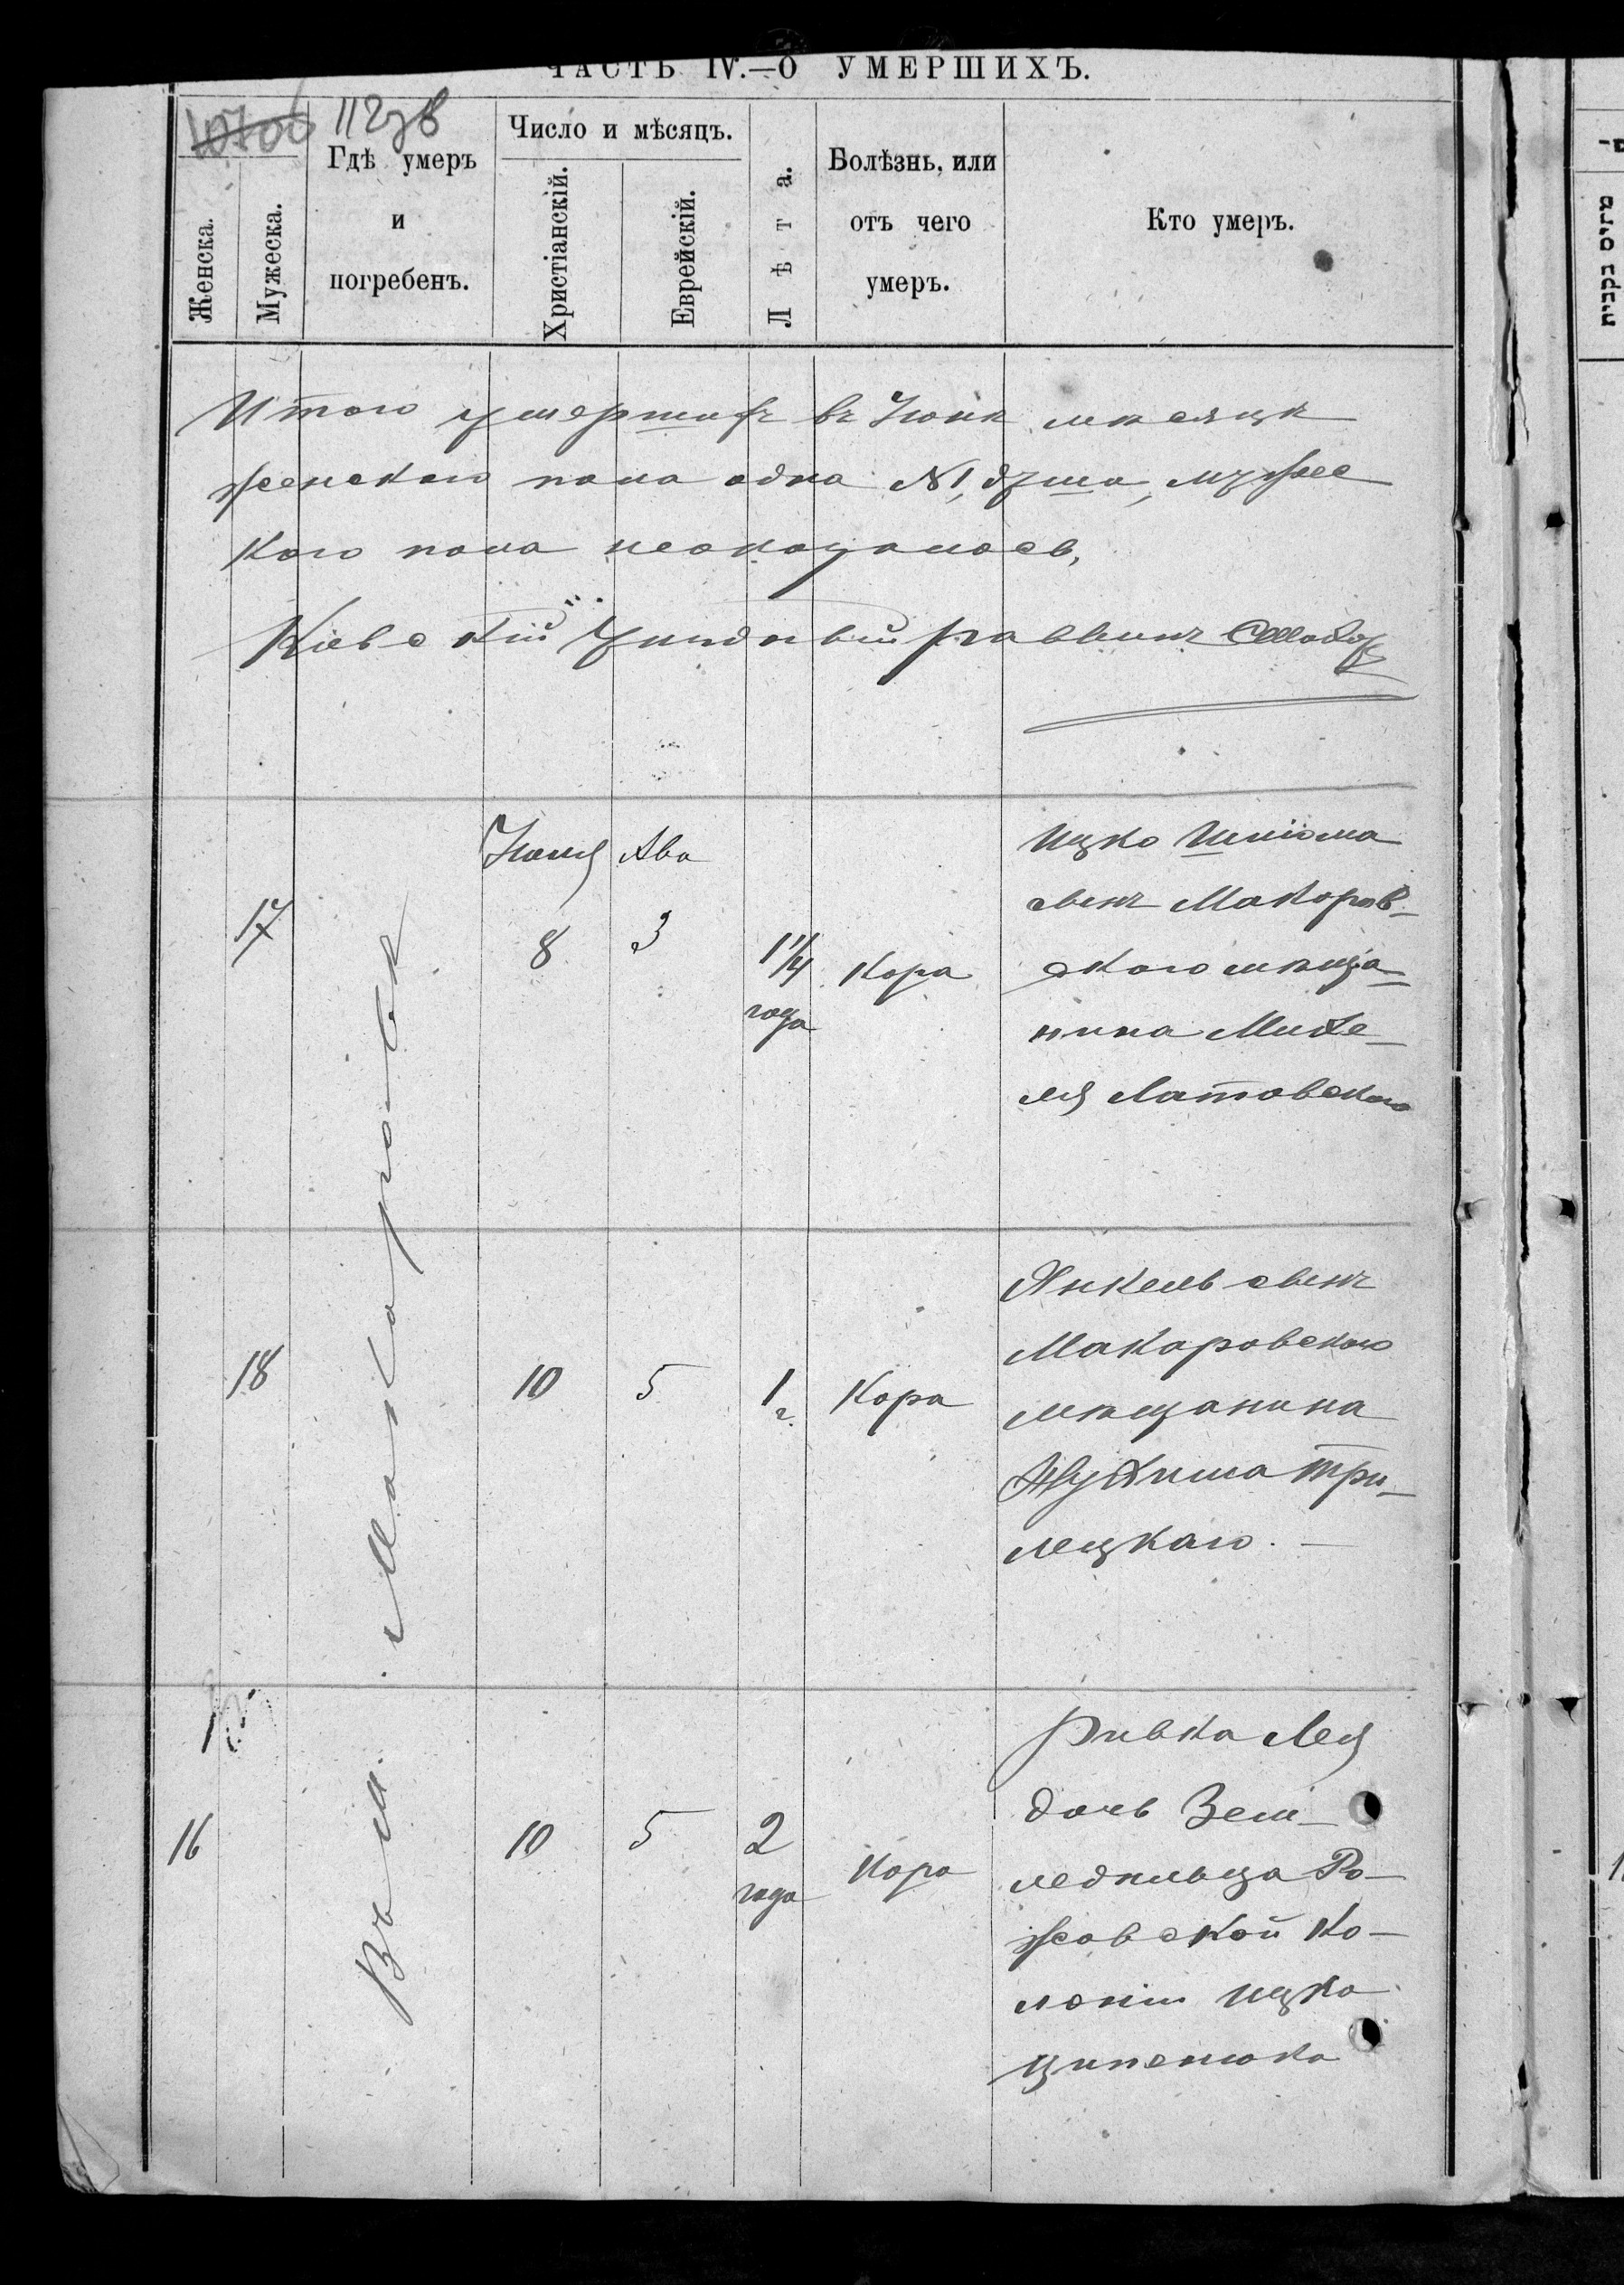 ЧАСТЬ IV.—О УМЕРШИХЪ.
112 зв
Женска.
Мужеска.
Гдѣ умеръ
и
погребенъ.
Число и мѣсяцъ.
Христіанскій.
Еврейскій.
Лѣта.
Болѣзнь, или
отъ чего
умеръ.
Кто умеръ.
Итого умершихъ въ Іюнѣ мѣсяцѣ
женскаго пола одна №1, душа, мужес
каго пола неоказалось,
Кіевскій Уѣздный раввинъ
Въ м. Макаровѣ
17
Іюля
8
Ава
3
1 1/4
года
Кора
Ицко Шліома
сынъ Макаров-
скаго мѣща-
нина Михе-
ля Латовскаго
18
10
5
1
г.
Кора
Янкель сынъ
Макаровскаго
мѣщанина
Нухима Три-
лецкаго. —
16
10
5
2
года
Кора
Ривка Лея
дочь Зем-
ледѣльца Ро-
жовской Ко-
лоніи Ицка
Ципенюка